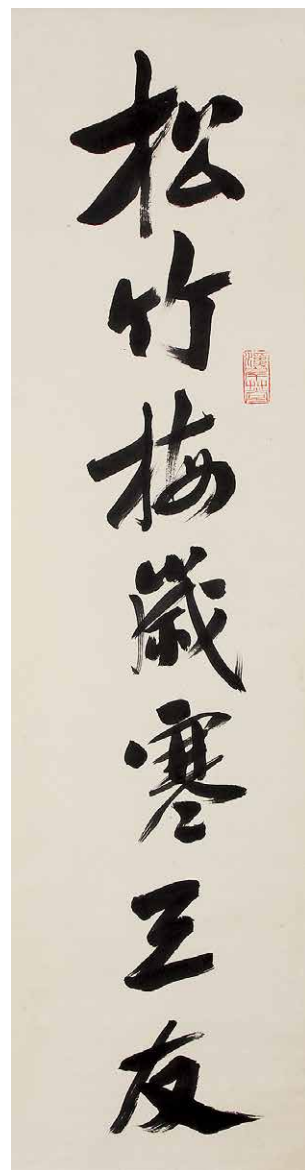 松竹梅歳寒三友